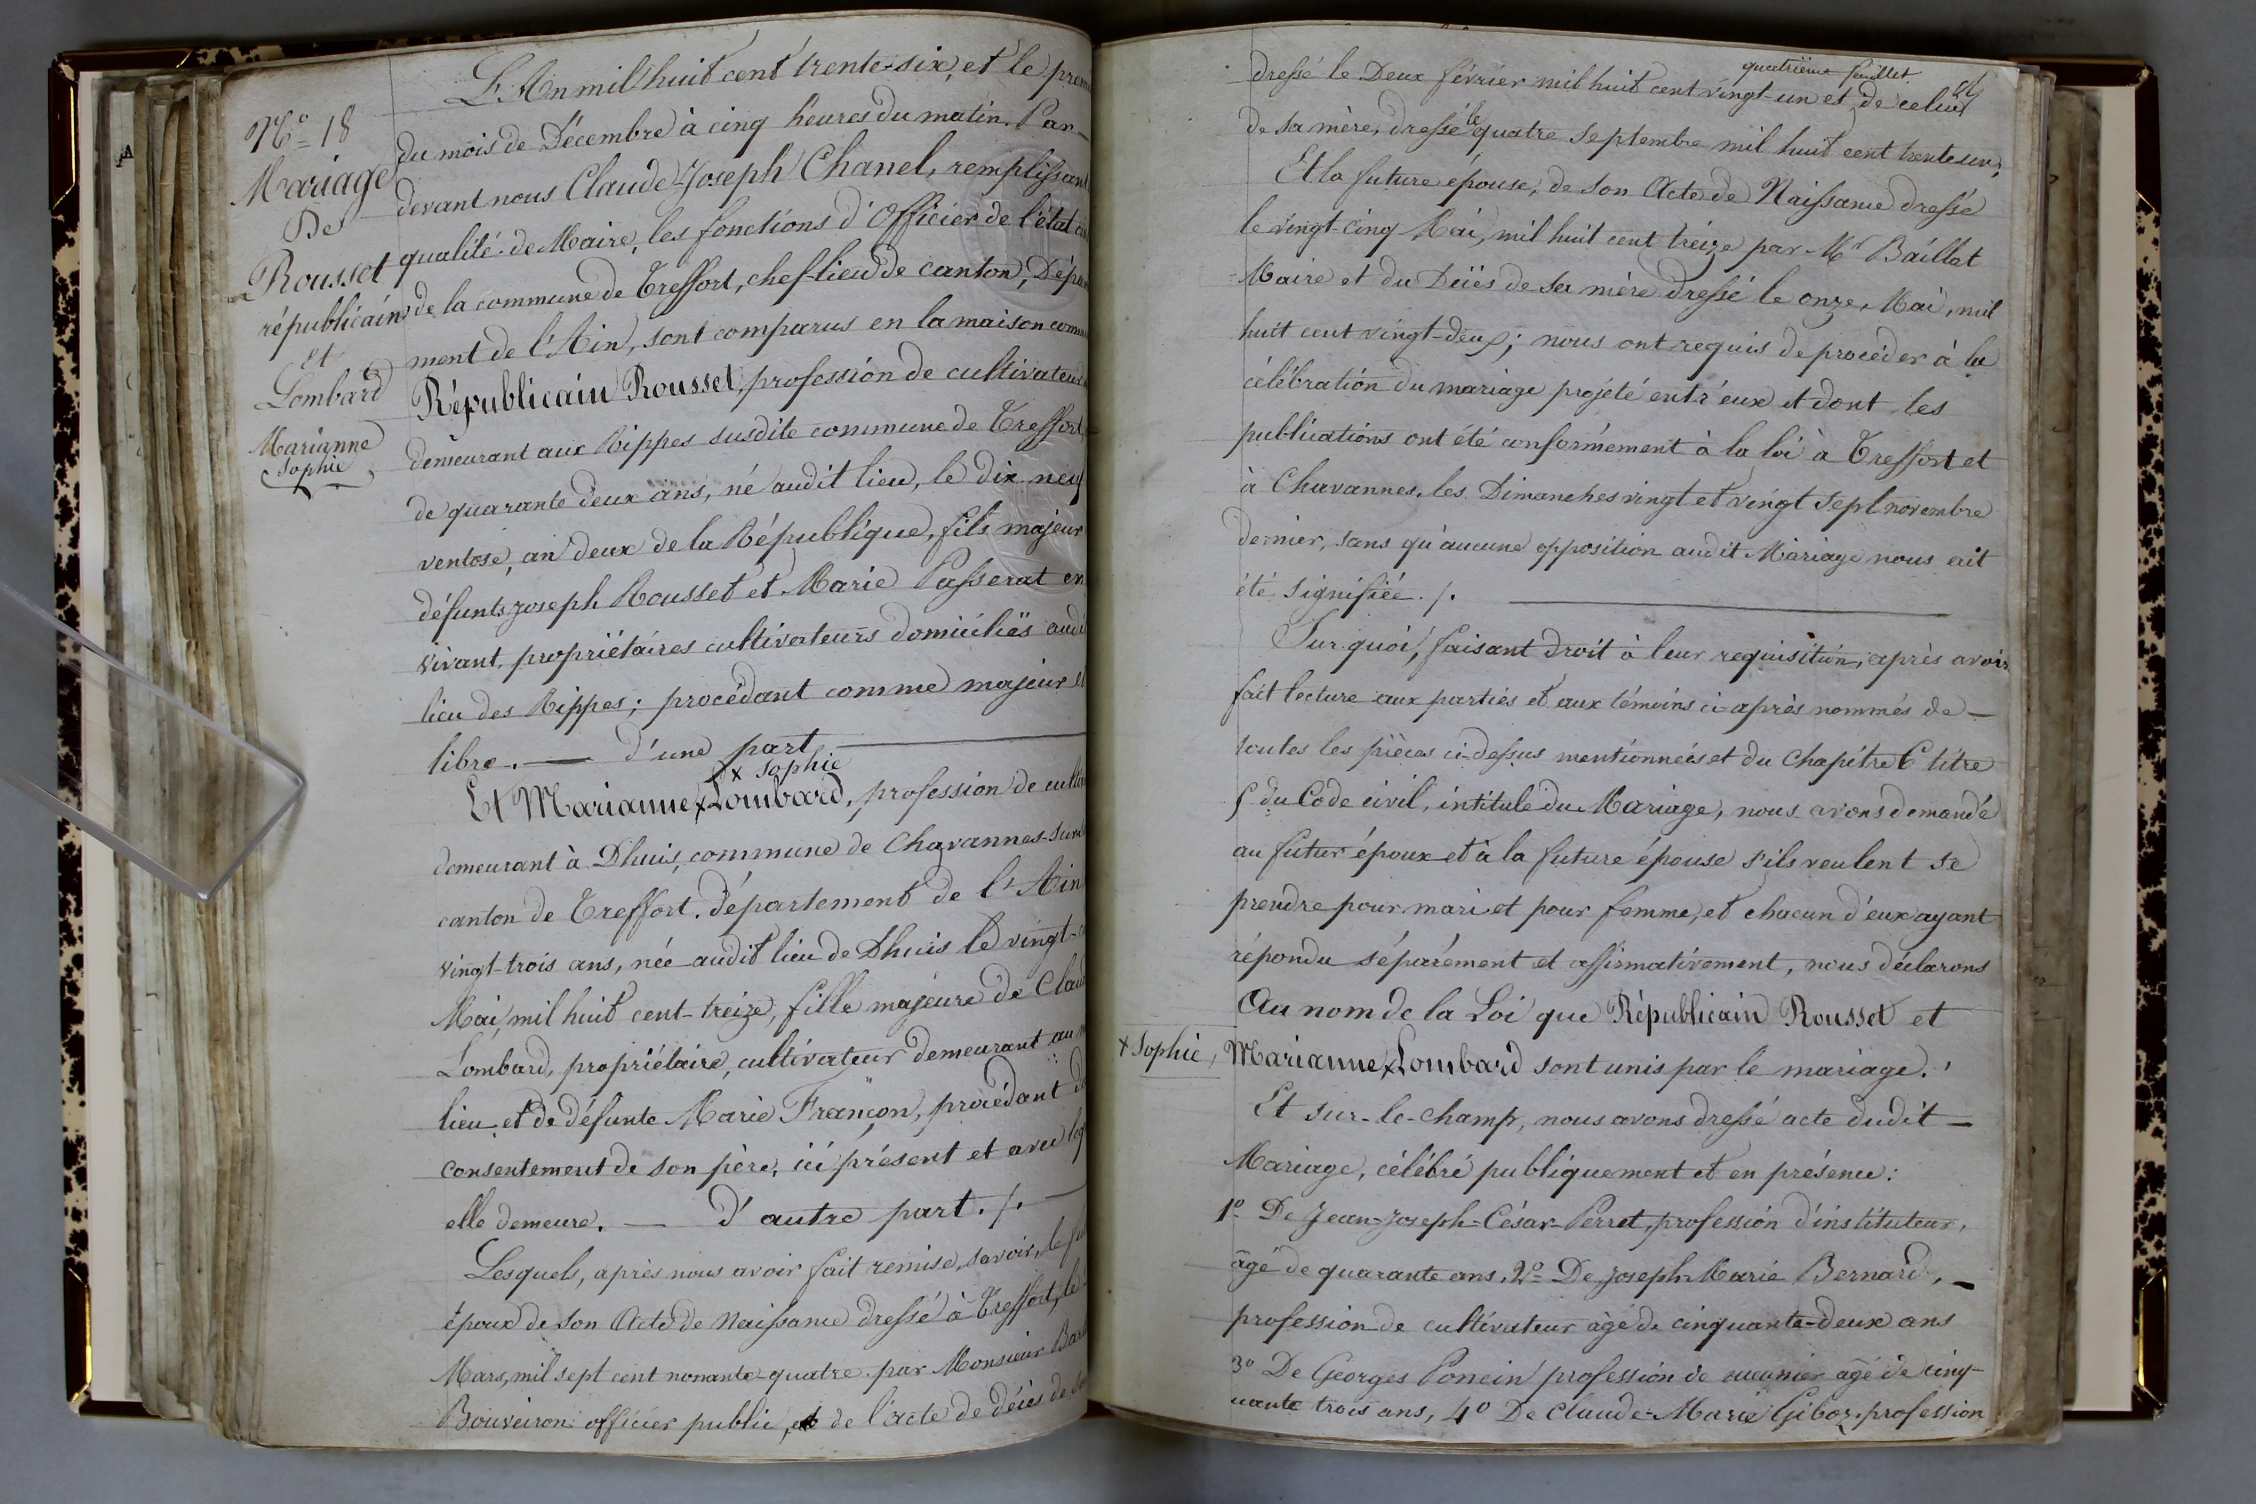 N.° 18
Mariage
De
Rousset
républicain
Et
Lombard
Marianne
Sophie
L'An mil huit cent trente-six, et le prem
du mois de Décembre à cinq heures du matin. Par-
devant nous Claude-Joseph Chanel, remplissant
qualité de Maire, les fonctions d'Officier de l'état ci
de la commune de Treffort, chef-lieu de canton, Dépar
ment de l'Ain, sont comparus en la maison comm
Républicain Rousset, profession de cultivateur
demeurant aux Rippes susdite commune de Treffort,
de quarante deux ans, né audit lieu, le dix neuf
ventose, an deux de la République, fils majeur
défunts Joseph Rousset et Marie Passerat en
vivant, propriétaires cultivateurs domiciliés audi
lieu des Rippes; procédant comme majeur et
libre. — d'une part —
x Sophie
Et Marianne x Lombard, profession de culti
demeurant à Dhuis, commune de Chavannes-Sur
canton de Treffort, département de l'Ain
vingt-trois ans, née audit lieu de Dhuis le vingt-c
Mai, mil huit cent-treize, fille majeure de Claud
Lombard, propriétaire, cultivateur demeurant au
lieu et de défunte Marie Françon, procédant d
consentement de son père, ici présent et avec leq
elle demeure. — d'autre part. /. —
Lesquels, après nous avoir fait remise, savoir, le fu
époux de son Acte de Naissance dressé à Treffort, le
Mars, mil sept cent nonante-quatre par Monsieur
Bouveiron officier public, et de l'acte de décès de
quatrième feuillet
dressé le Deux février mil huit cent vingt-un et de celui
de sa mère, dressé le quatre Septembre mil huit cent trente un;
Et la future épouse, de son Acte de Naissance dressé
le vingt-cinq Mai, mil huit cent treize par Mr Baillat
Maire et du Décès de sa mère dressé le onze Mai, mil
huit cent vingt-deux; nous ont requis de procéder à la
célébration du mariage projeté entr'eux et dont les
publications ont été conformément à la loi à Treffort et
à Chavannes, les Dimanches vingt et vingt Sept novembre
dernier, sans qu'aucune opposition audit Mariage nous ait
été signifiée. /. —
Sur quoi, faisant droit à leur requisition, après avoir
fait lecture aux parties et aux témoins ci-après nommés de —
toutes les pièces ci-dessus mentionnées et du Chapitre 6 titre
5 du Code civil, intitulé du Mariage, nous avons demandé
au futur époux et à la future épouse s'ils veulent se
prendre pour mari et pour femme, et chacun d'eux ayant
répondu séparément et affirmativement, nous déclarons
Au nom de la Loi que Républicain Rousset et
x Sophie, Marianne x Lombard sont unis par le mariage.
Et sur-le-champ, nous avons dressé acte dudit —
Mariage, célébré publiquement et en présence:
1° De Jean-Joseph-César-Perret, profession d'instituteur,
âgé de quarante ans, 2° De Joseph-Marie Bernard, —
profession de cultivateur âgé de cinquante-deux ans
3° De Georges Poncin profession de âgé de cinq-
uante trois ans, 4° De Claude-Marie Giboz, profession